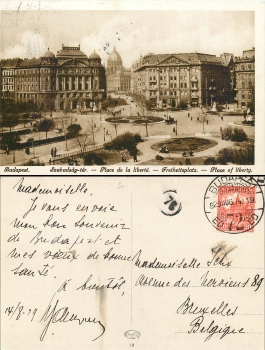 Budapest. Szabadság-tér. — Place de la liberté. — Freiheitsplatz. — Place of liberty.
Mademoiselle.
Je vous envoie
mon bon souvenir
de Budapest et
mes voeux de bonne
santé.
A bientôt,
14/8/29
BUDAPEST
Mademoiselle
Avenue des Nerviens 91
Bruxelles
Belgique